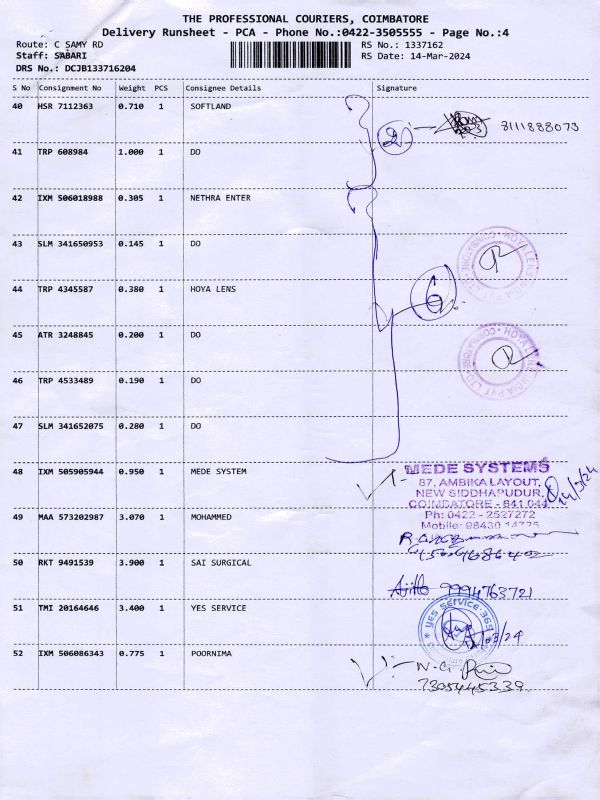 THE PROFESSIONAL COURIERS, COIMBATORE
Delivery Runsheet - PCA - Phone No.:0422-3505555 - Page No.:4
Route: C SAMY RD RS No.: 1337162
Staff: SABARI RS Date: 14-Mar-2024
DRS No.: DCJB133716204
S No Consignment No Weight PCS Consignee Details Signature
40 HSR 7112363 0.710 1 SOFTLAND
2 8111888073
41 TRP 608984 1.000 1 DO
42 IXM 506018988 0.305 1 NETHRA ENTER
43 SLM 341650953 0.145 1 DO
HOYA LENS INDIA PVT LTD COIMBATORE
44 TRP 4345587 0.380 1 HOYA LENS
6
45 ATR 3248845 0.200 1 DO
HOYA LENS INDIA PVT LTD COIMBATORE
46 TRP 4533489 0.190 1 DO
47 SLM 341652075 0.280 1 DO
48 IXM 505905944 0.950 1 MEDE SYSTEM
MEDE SYSTEMS
87, AMBIKA LAYOUT,
NEW SIDDHAPUDUR,
COIMBATORE - 641 044
Ph: 0422 - 2527272
Mobile: 98430 14725
14/3/24
49 MAA 573202987 3.070 1 MOHAMMED
50 RKT 9491539 3.900 1 SAI SURGICAL
Ajitto 9994763721
51 TMI 20164646 3.400 1 YES SERVICE
YES SERVICE 369
52 IXM 506086343 0.775 1 POORNIMA
7305445339